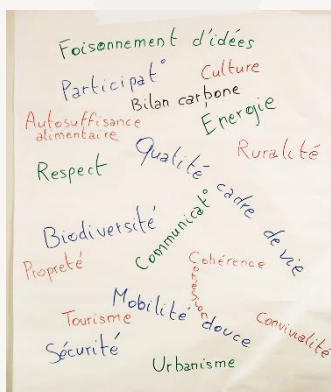 Foisonnement d'idées
Participat°
Culture
Bilan carbone
Autosuffisance
alimentaire
Energie
Ruralité
Respect
Qualité cadre de vie
Biodiversité
Communicat°
Propreté
Cohérence
Cohésion
Mobilité douce
Tourisme
Convivialité
Sécurité
Urbanisme